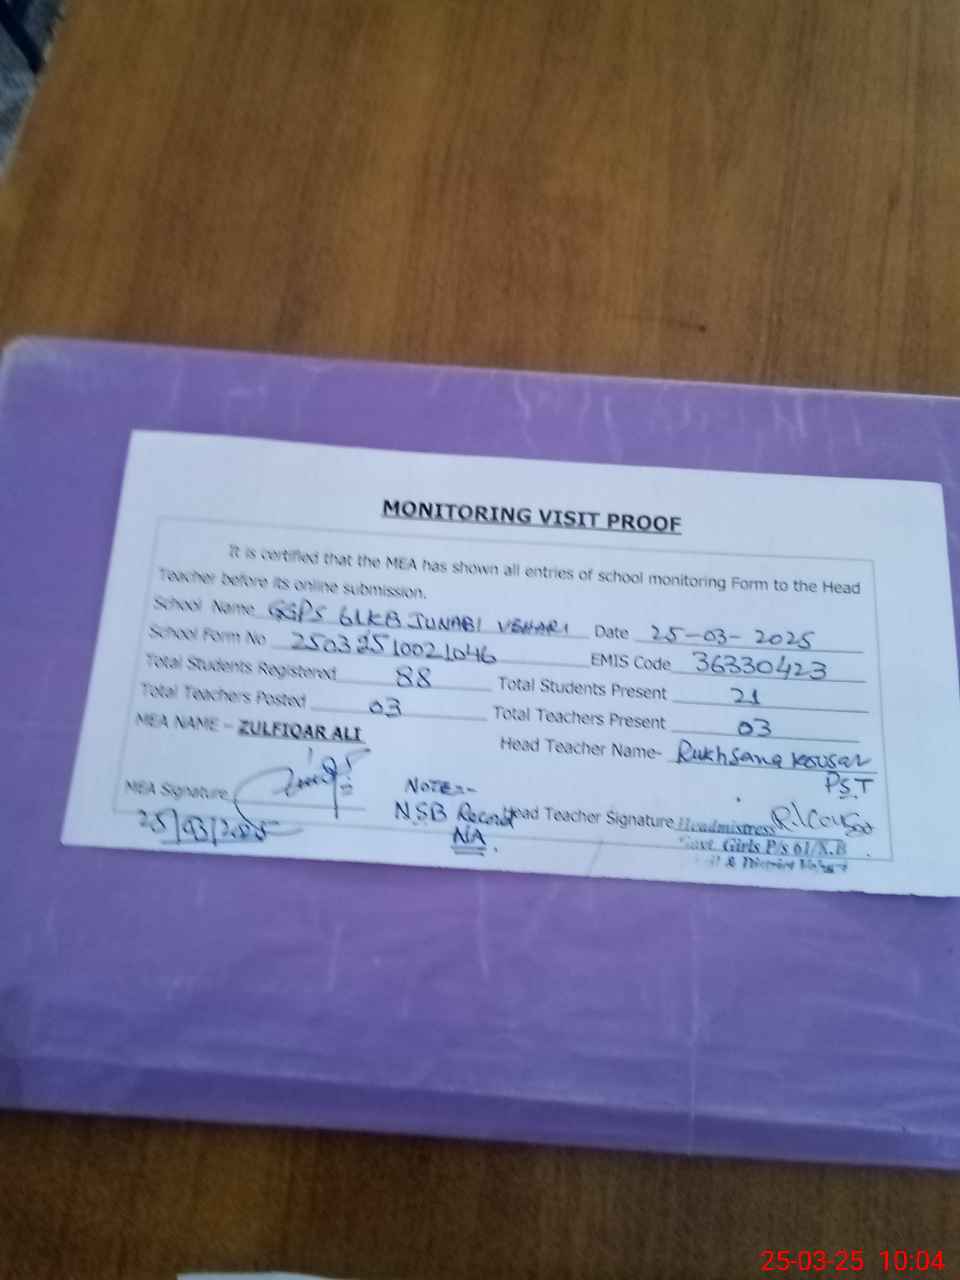 MONITORING VISIT PROOF
It is certified that the MEA has shown all entries of school monitoring Form to the Head
Teacher before its online submission.
School Name GGPS 61KB JUNABI VEHARI Date 25-03-2025
School Form No 25032510021046 EMIS Code 36330423
Total Students Registered 88 Total Students Present 21
Total Teachers Posted 03 Total Teachers Present 03
MEA NAME – ZULFIQAR ALI Head Teacher Name- Rukhsana kousar
PST
MEA Signature
25/03/2025
NOTE:-
NSB Record
NA.
Head Teacher Signature
Headmistress
Govt. Girls P/s 61/K.B
& District
25-03-25 10:04